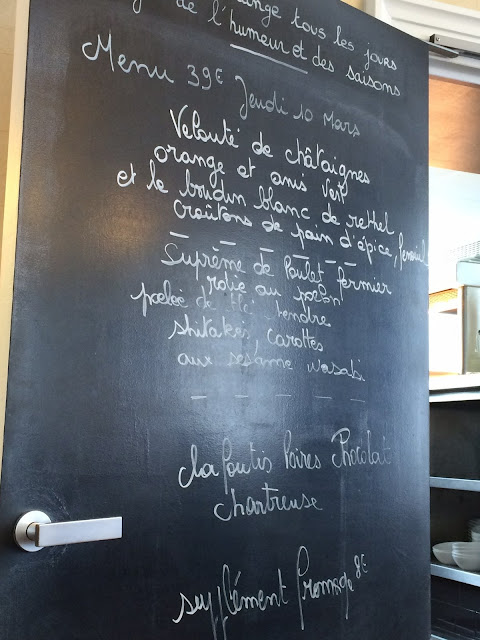 change tous les jours
de l'humeur et des saisons
Menu 39€ Jeudi 10 Mars
Velouté de châtaignes
orange et anis vert
et le boudin blanc de rethel
croûtons de pain d'épice, fenouil
Suprême de Poulet fermier
rotie au
poelée de blé tendre
shitakes, carottes
aux sesame wasabi
clafoutis Poires Chocolat
chartreuse
supplément fromage 8€